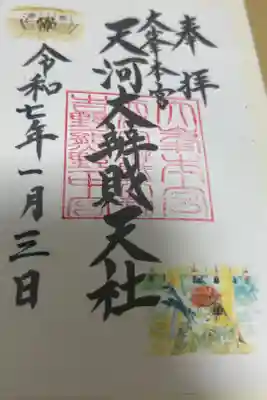 奉拝
大峯本宮
天河大辯財天社
令和七年一月三日